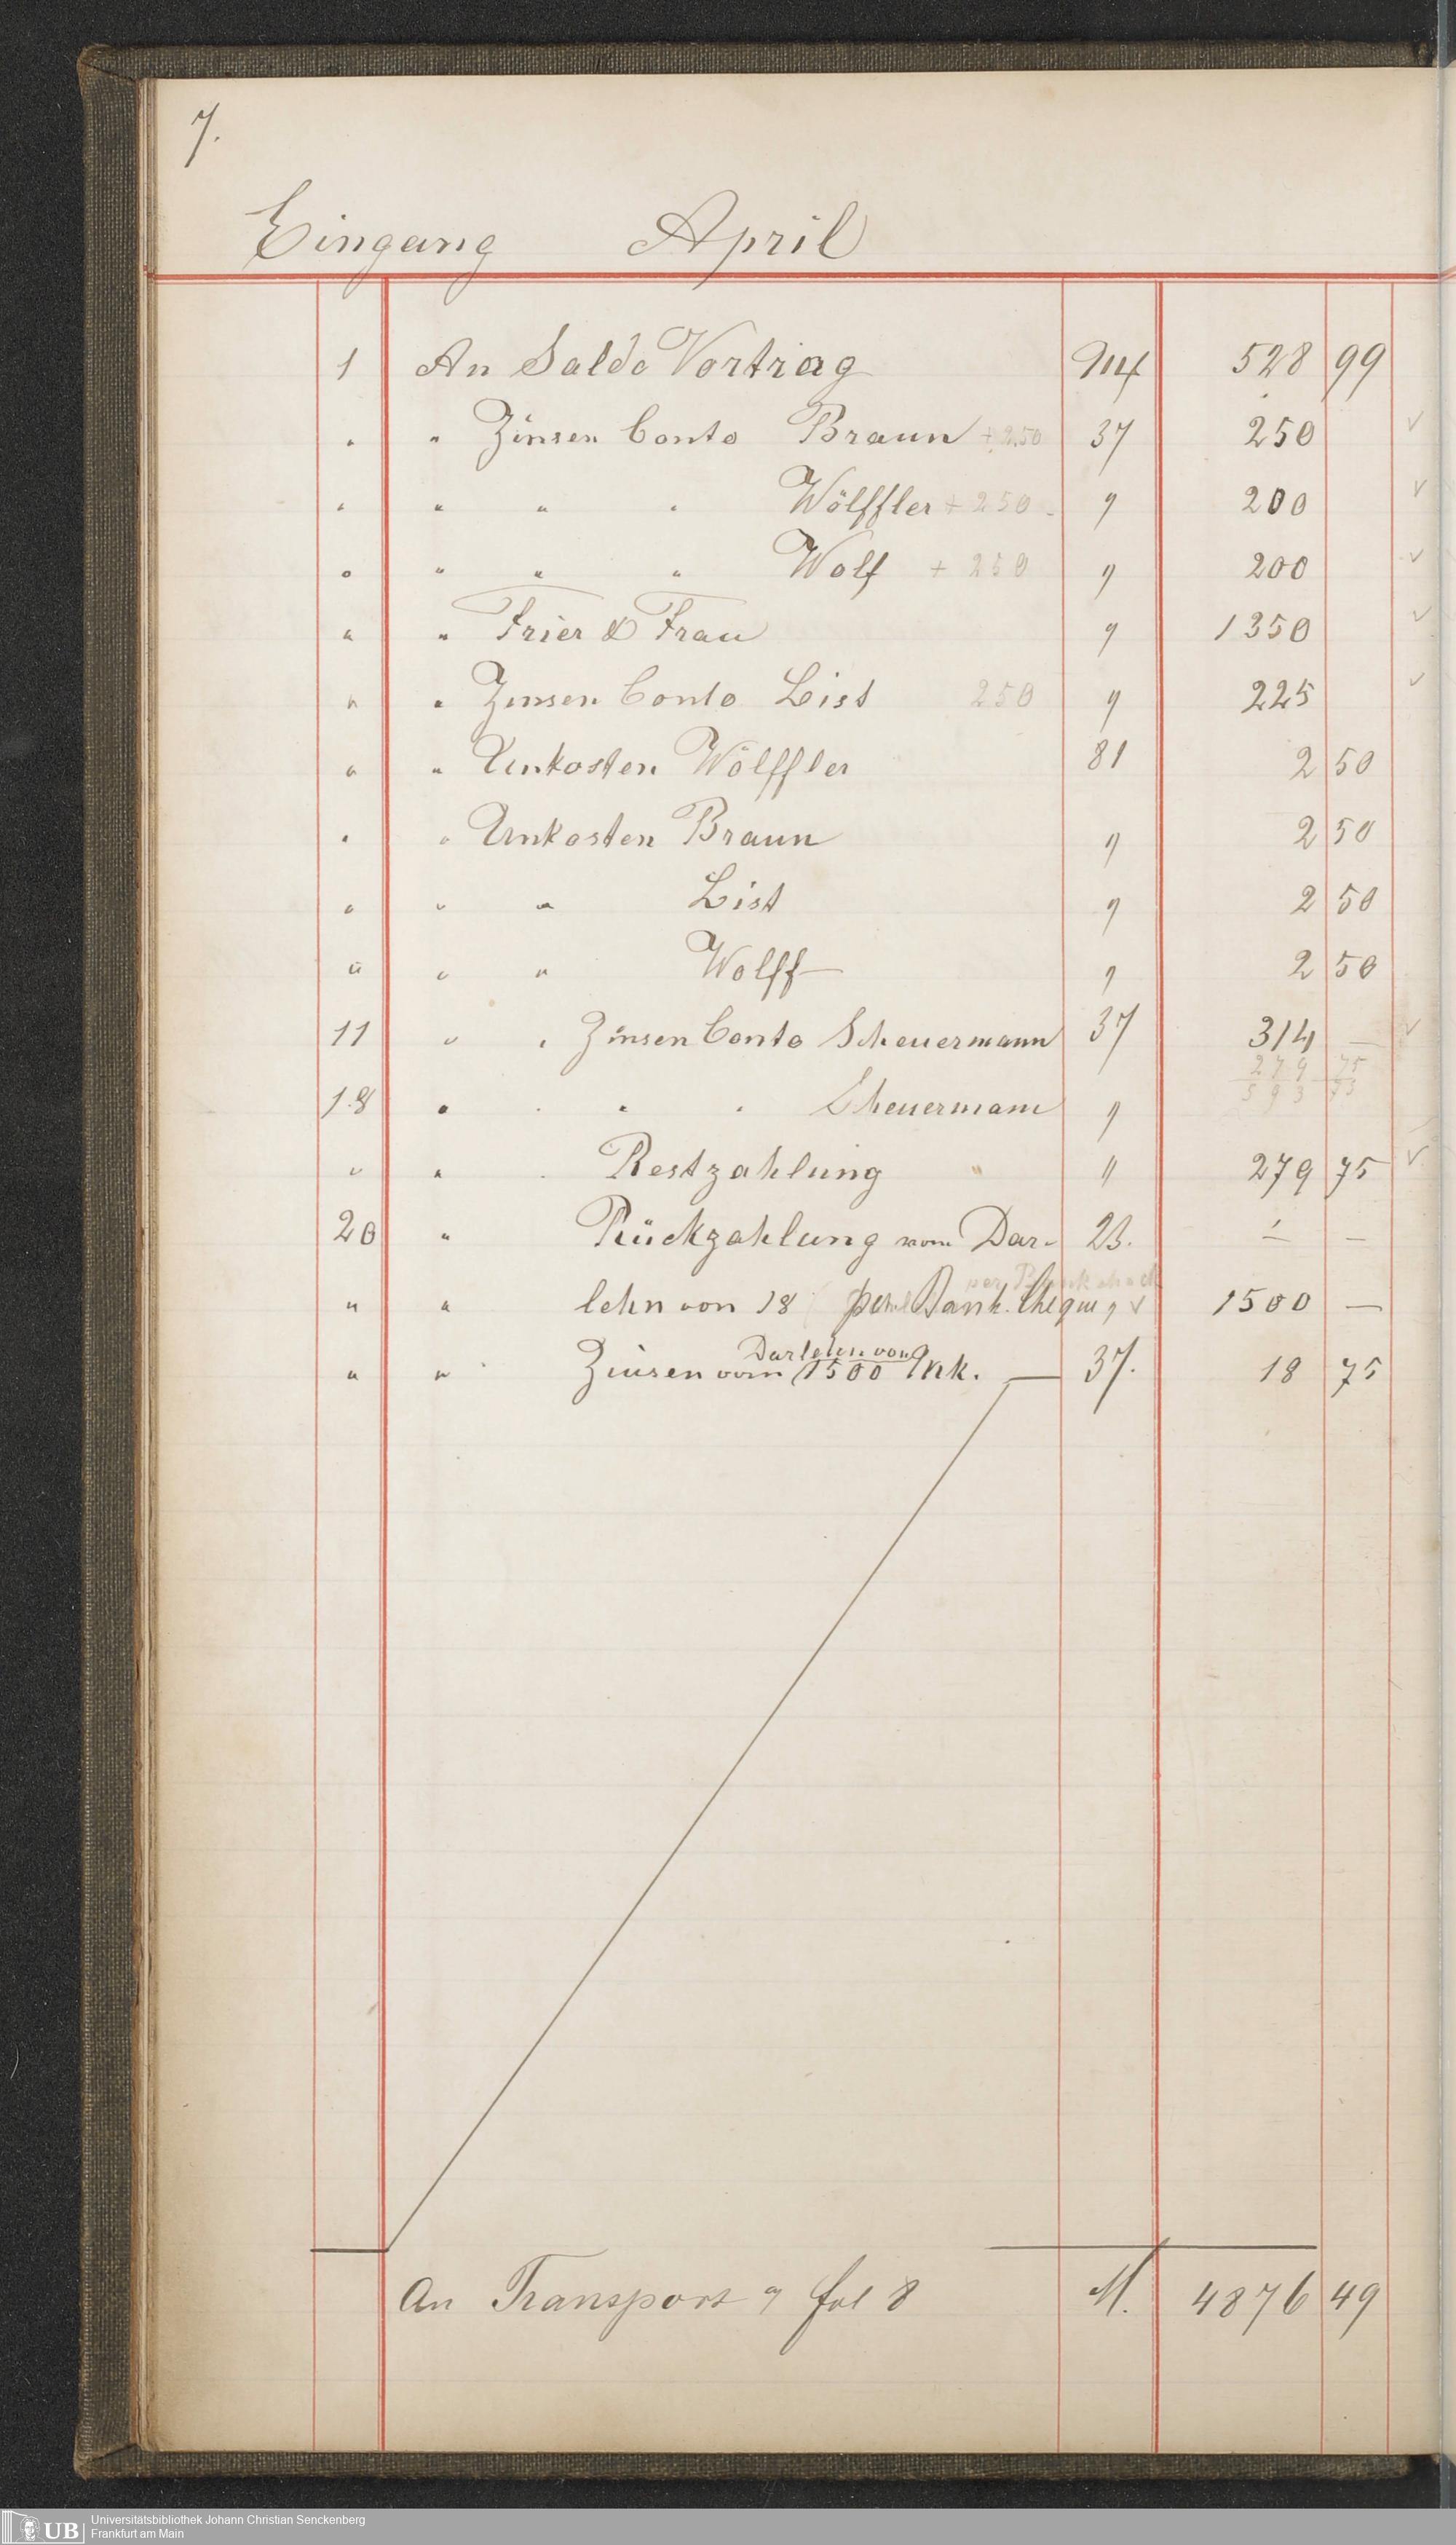 7.
Eingang April
1 An Saldo Vortrag M 528 99
" " Zinsen Conto Braun + 2.50 37 250
" " " " Wölffler + 250 " 200
" " " " Wolf + 250 " 200
" " Frier & Frau " 1350
" " Zinsen Conto List 250 " 225
" " Unkosten Wölffler 81 2 50
" " Unkosten Braun " 2 50
" " " List " 2 50
" " " Wolff " 2 50
11 " " Zinsen Conto Scheuermann 37 314 —
279 75
593 75
18 " " " " Scheuermann "
" " " Restzahlung " " 279 75
20 " Rückzahlung vom Dar- 23. — —
per Bankcheck
" " lehn von 18 per Bank. Cheque " 1500 —
Darlehn von
" " Zinsen vom 1500 Mk. — 37. 18 75
An Transport fol 8 M. 4876 49
UB Universitätsbibliothek Johann Christian Senckenberg
Frankfurt am Main